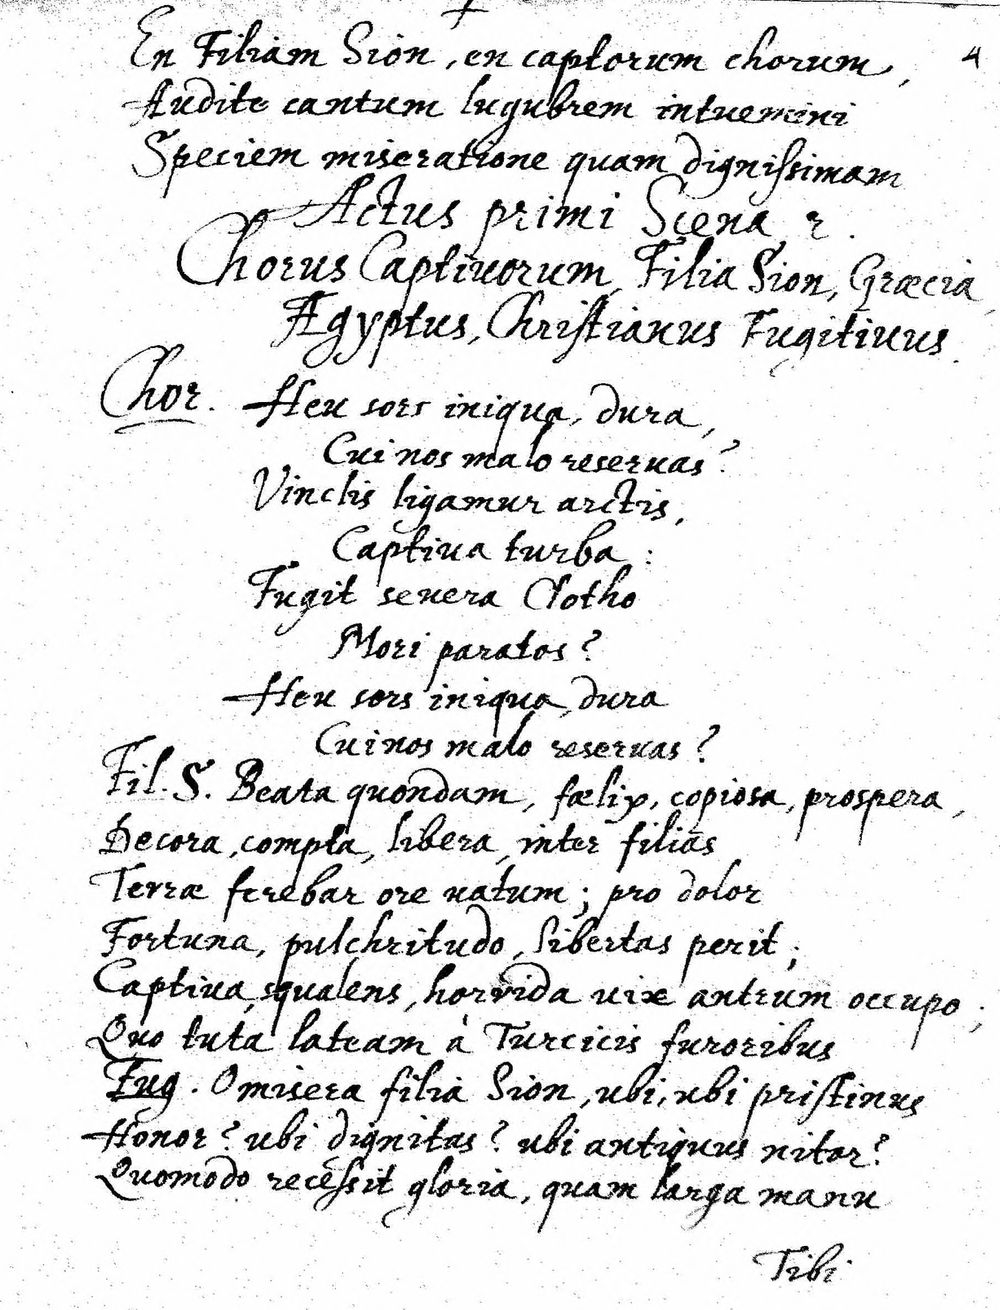 En Filiam Sion, en captorum chorum, 4
Audite cantum lugubrem intuemini
Speciem miseratione quam dignissimam
Actus primi Scena 2.
Chorus Captiuorum, Filia Sion, Græcia,
Ægyptus, Christianus Fugitiuus.
Chor. Heu sors iniqua, dura,
Cui nos malo reseruas?
Vinclis ligamur arctis,
Captiua turba:
Fugit seuera Clotho
Mori paratos?
Heu sors iniqua, dura
Cui nos malo reseruas?
Fil. S. Beata quondam, fælix, copiosa, prospera,
Decora, compta, libera, inter filias
Terræ ferebar ore uatum; pro dolor
Fortuna, pulchritudo, libertas perit;
Captiua, squalens, horrida uix antrum occupo;
Quo tuta lateam à Turcicis furoribus
Fug. O misera filia Sion, ubi, ubi pristinus
Honor? ubi dignitas? ubi antiquus nitor?
Quomodo recessit gloria, quam larga manu
Tibi